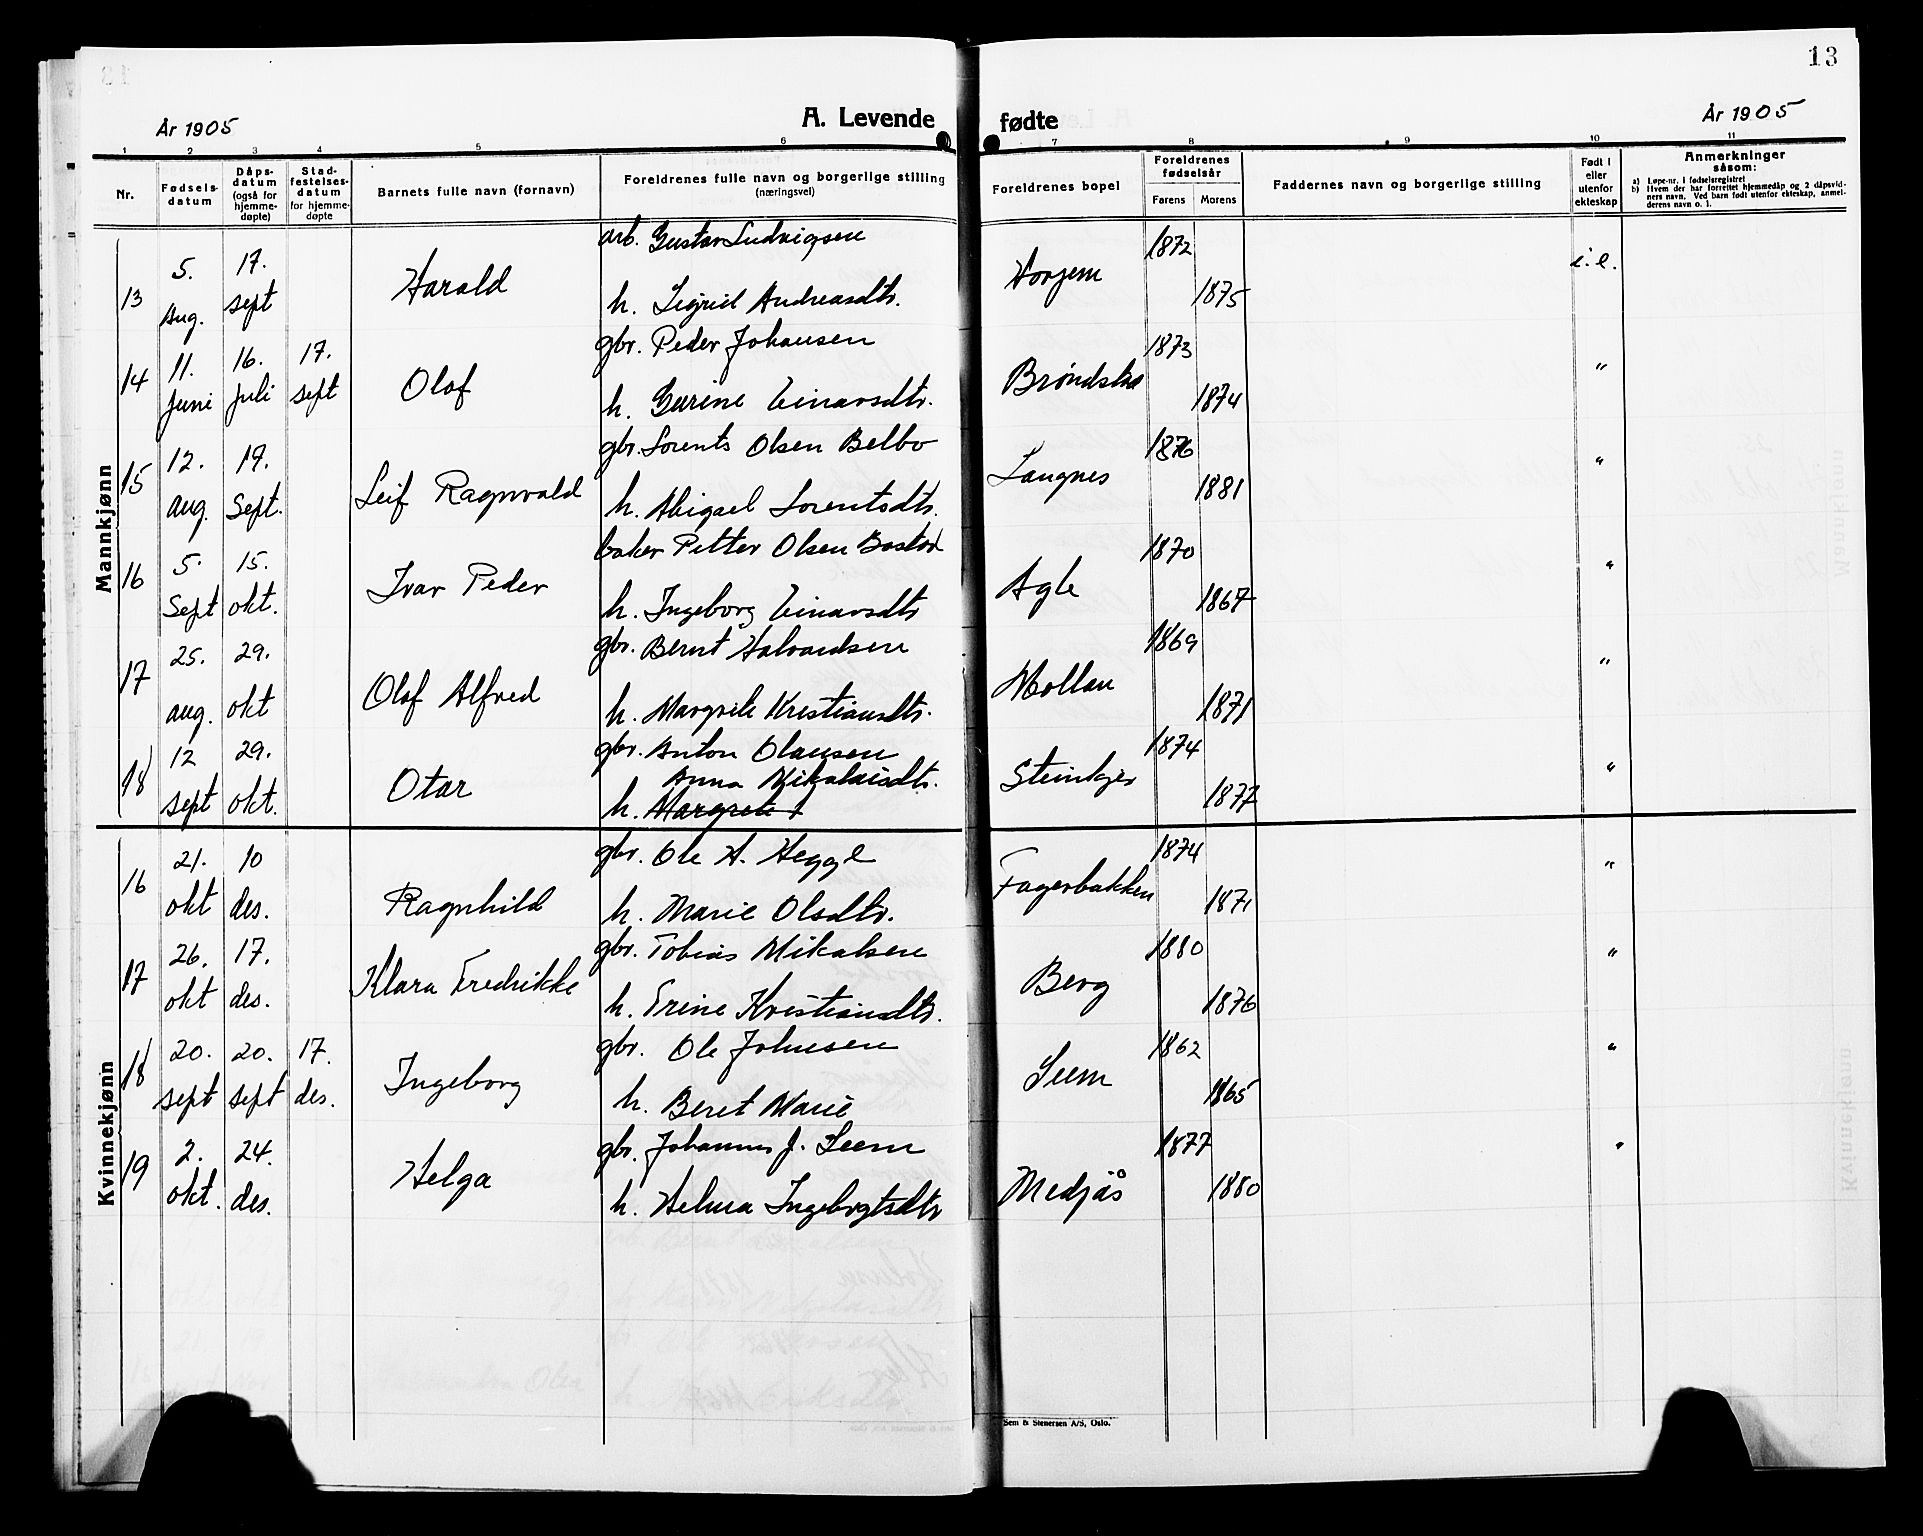 13
År 1905
A. Levende fødte
År 1905
1 2 3 4 5 6 7 8 9 10 11
Nr.
Fødsels-
datum
Dåps-
datum
(også for
hjemme-
døpte)
Stad-
festelses-
datum
for hjemme-
døpte
Barnets fulle navn (fornavn)
Foreldrenes fulle navn og borgerlige stilling
(næringsvei)
Foreldrenes bopel
Foreldrenes
fødselsår
Farens Morens
Faddernes navn og borgerlige stilling
Født i
eller
utenfor
ekteskap
Anmerkninger
såsom:
a) Løpe-nr. i fødselsregistret
b) Hvem der har forrettet hjemmedåp og 2 dåpsvid-
ners navn. Ved barn født utenfor ekteskap, anmel-
derens navn o. l.
Mannkjønn
13 5. Aug. 17. sept Harald arb. Gustav Ludvigsen Hovjem 1872 i.e.
h. Sigrid Andreasdtr. 1875
14 11. juni 16. juli 17. sept Olaf gbr. Peder Johansen Brøndsta 1873 "
h. Gurine Einarsdtr. 1874
15 12. aug. 17. Sept. Leif Ragnvald gbr. Lorents Olsen Belbo Langnes 1876 "
h. Abigael Lorentsdtr. 1881
16 5. Sept 15. okt. Ivar Peder baker Petter Olsen Bostad Agle 1870 "
h. Ingeborg Einarsdtr 1867
17 25. aug. 29. okt Olaf Alfred gbr. Bernt Halvardsen Mollan 1869 "
h. Margrete Kristiansdtr. 1871
18 12 sept 29. okt. Otar gbr. Anton Olausen Steinkjer 1874 "
Anna Mikalaisdtr.
h. Margrete 1877
Kvinnekjønn
16 21. okt 10 des. Ragnhild gbr. Ole A. Hegge Fagerbakken 1874 "
h. Marie Olsdtr. 1871
17 26. okt 17. des. Klara Fredrikke gbr. Tobias Mikalsen Berg 1880 "
h. Trine Kristiansdtr. 1876
18 20. sept 20. sept 17. des. Ingeborg gbr. Ole Johnsen Seem 1862 "
h. Beret Marie 1865
19 2. okt. 24. des. Helga gbr. Johannes J. Seem Medjås 1877 "
h. Helma Ingebrigtsdtr 1880
Sem & Stenersen A/S, Oslo.